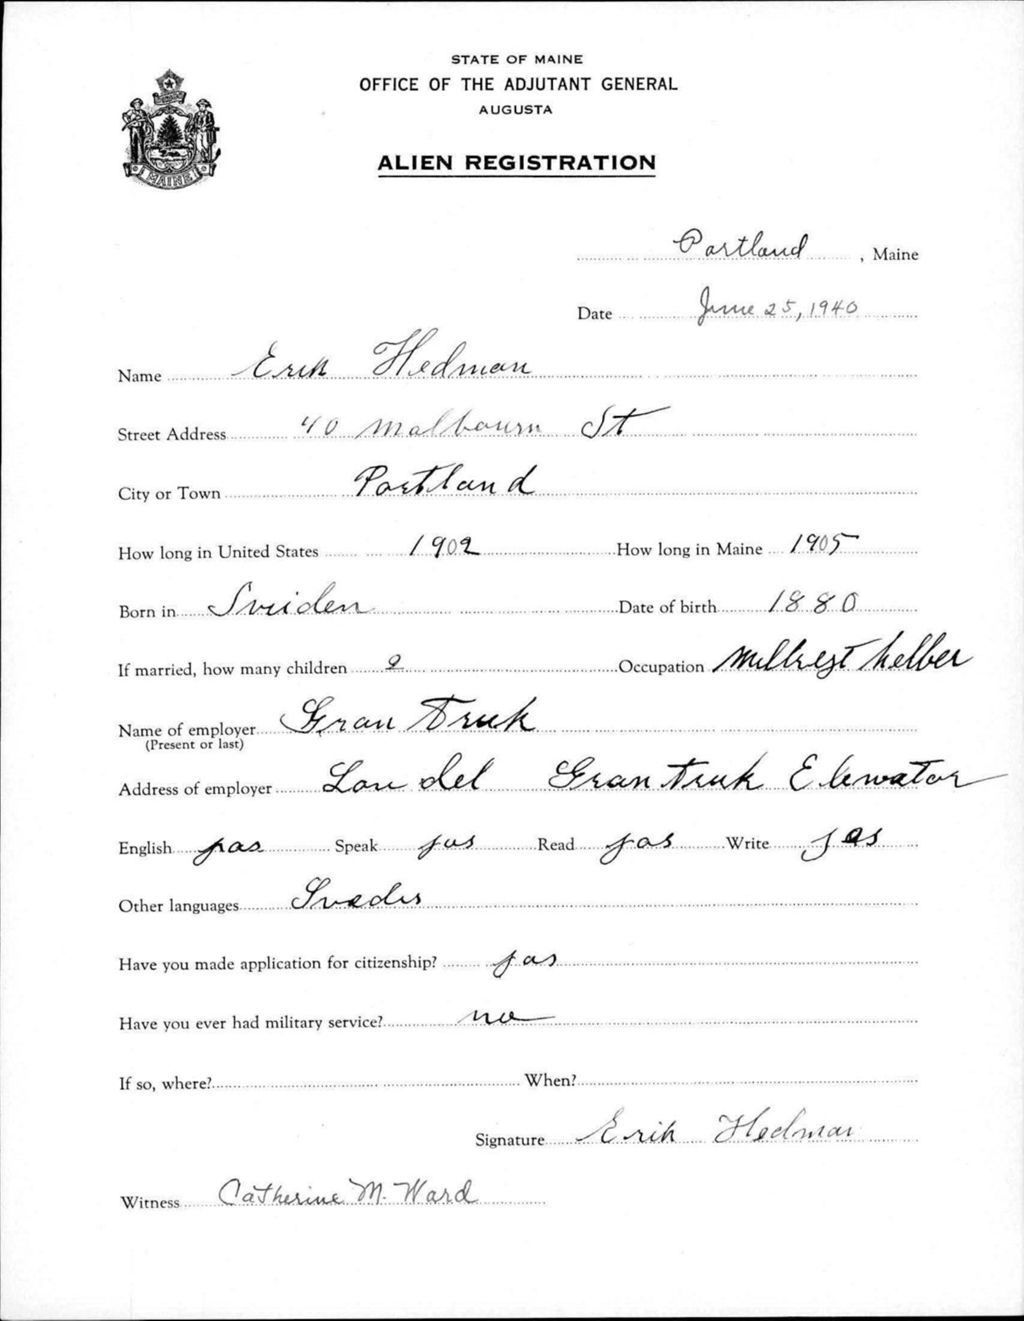 STATE OF MAINE
OFFICE OF THE ADJUTANT GENERAL
AUGUSTA
ALIEN REGISTRATION
MAINE
Portland, Maine
Date June 25, 1940
Name Erik Hedman
Street Address 40 Malbourn St
City or Town Portland
How long in United States 1902 How long in Maine 1905
Born in Sviden Date of birth 1880
If married, how many children 2 Occupation helber
Name of employer Gran Truk
(Present or last)
Address of employer Gran Truk Elewator
English jas Speak jas Read jas Write jas
Other languages Svedis
Have you made application for citizenship? jas
Have you ever had military service? no
If so, where? When?
Signature Erik Hedman
Witness Catherine M. Ward